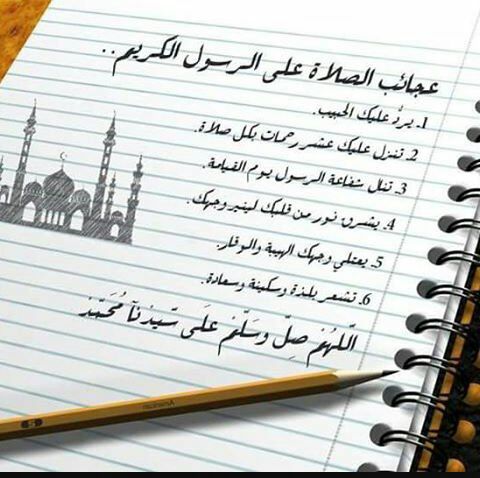 عجائب الصلاة على الرسول الكريم..
1. يردُّ عليك الحبيب.
2. تنزل عليك عشر رحمات بكل صلاة.
3. تنال شفاعة الرسول يوم القيامة.
4. يشرق نور من قلبك لينير وجهك.
5. يعتلي وجهك الهيبة والوقار.
6. تشعر بلذة وسكينة وسعادة.
اللهُمَّ صِلِّ وسَلِّمْ عَلَى سَيِّدِنآ مُحَمَّدْ
2